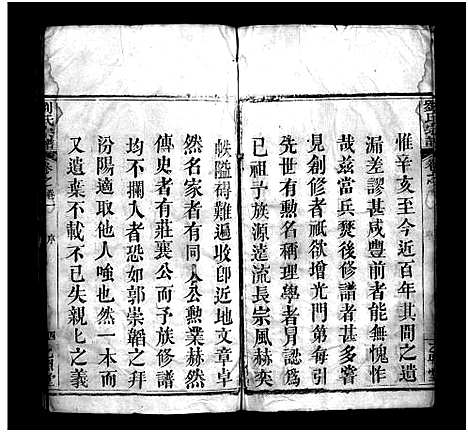 惟辛亥至今近百年其間之遺
漏差謬甚咸豐前者能無愧怍
哉茲當兵燹後修譜者甚難第
見創修者祇欲增光門第每引
先世有勲名稱理學者冐認爲
己祖予族源遠流長宗風赫奕
帙隘碍難遍收卽近地文章卓
然名家者有同入公勲業赫然
傳史者有莊襄公而予族修譜
均不攔入者恐如郭崇韜之拜
汾陽適取他人嗤也然一本而
又遺葉不載不已失親上之義
劉氏宗譜
卷之
序
四